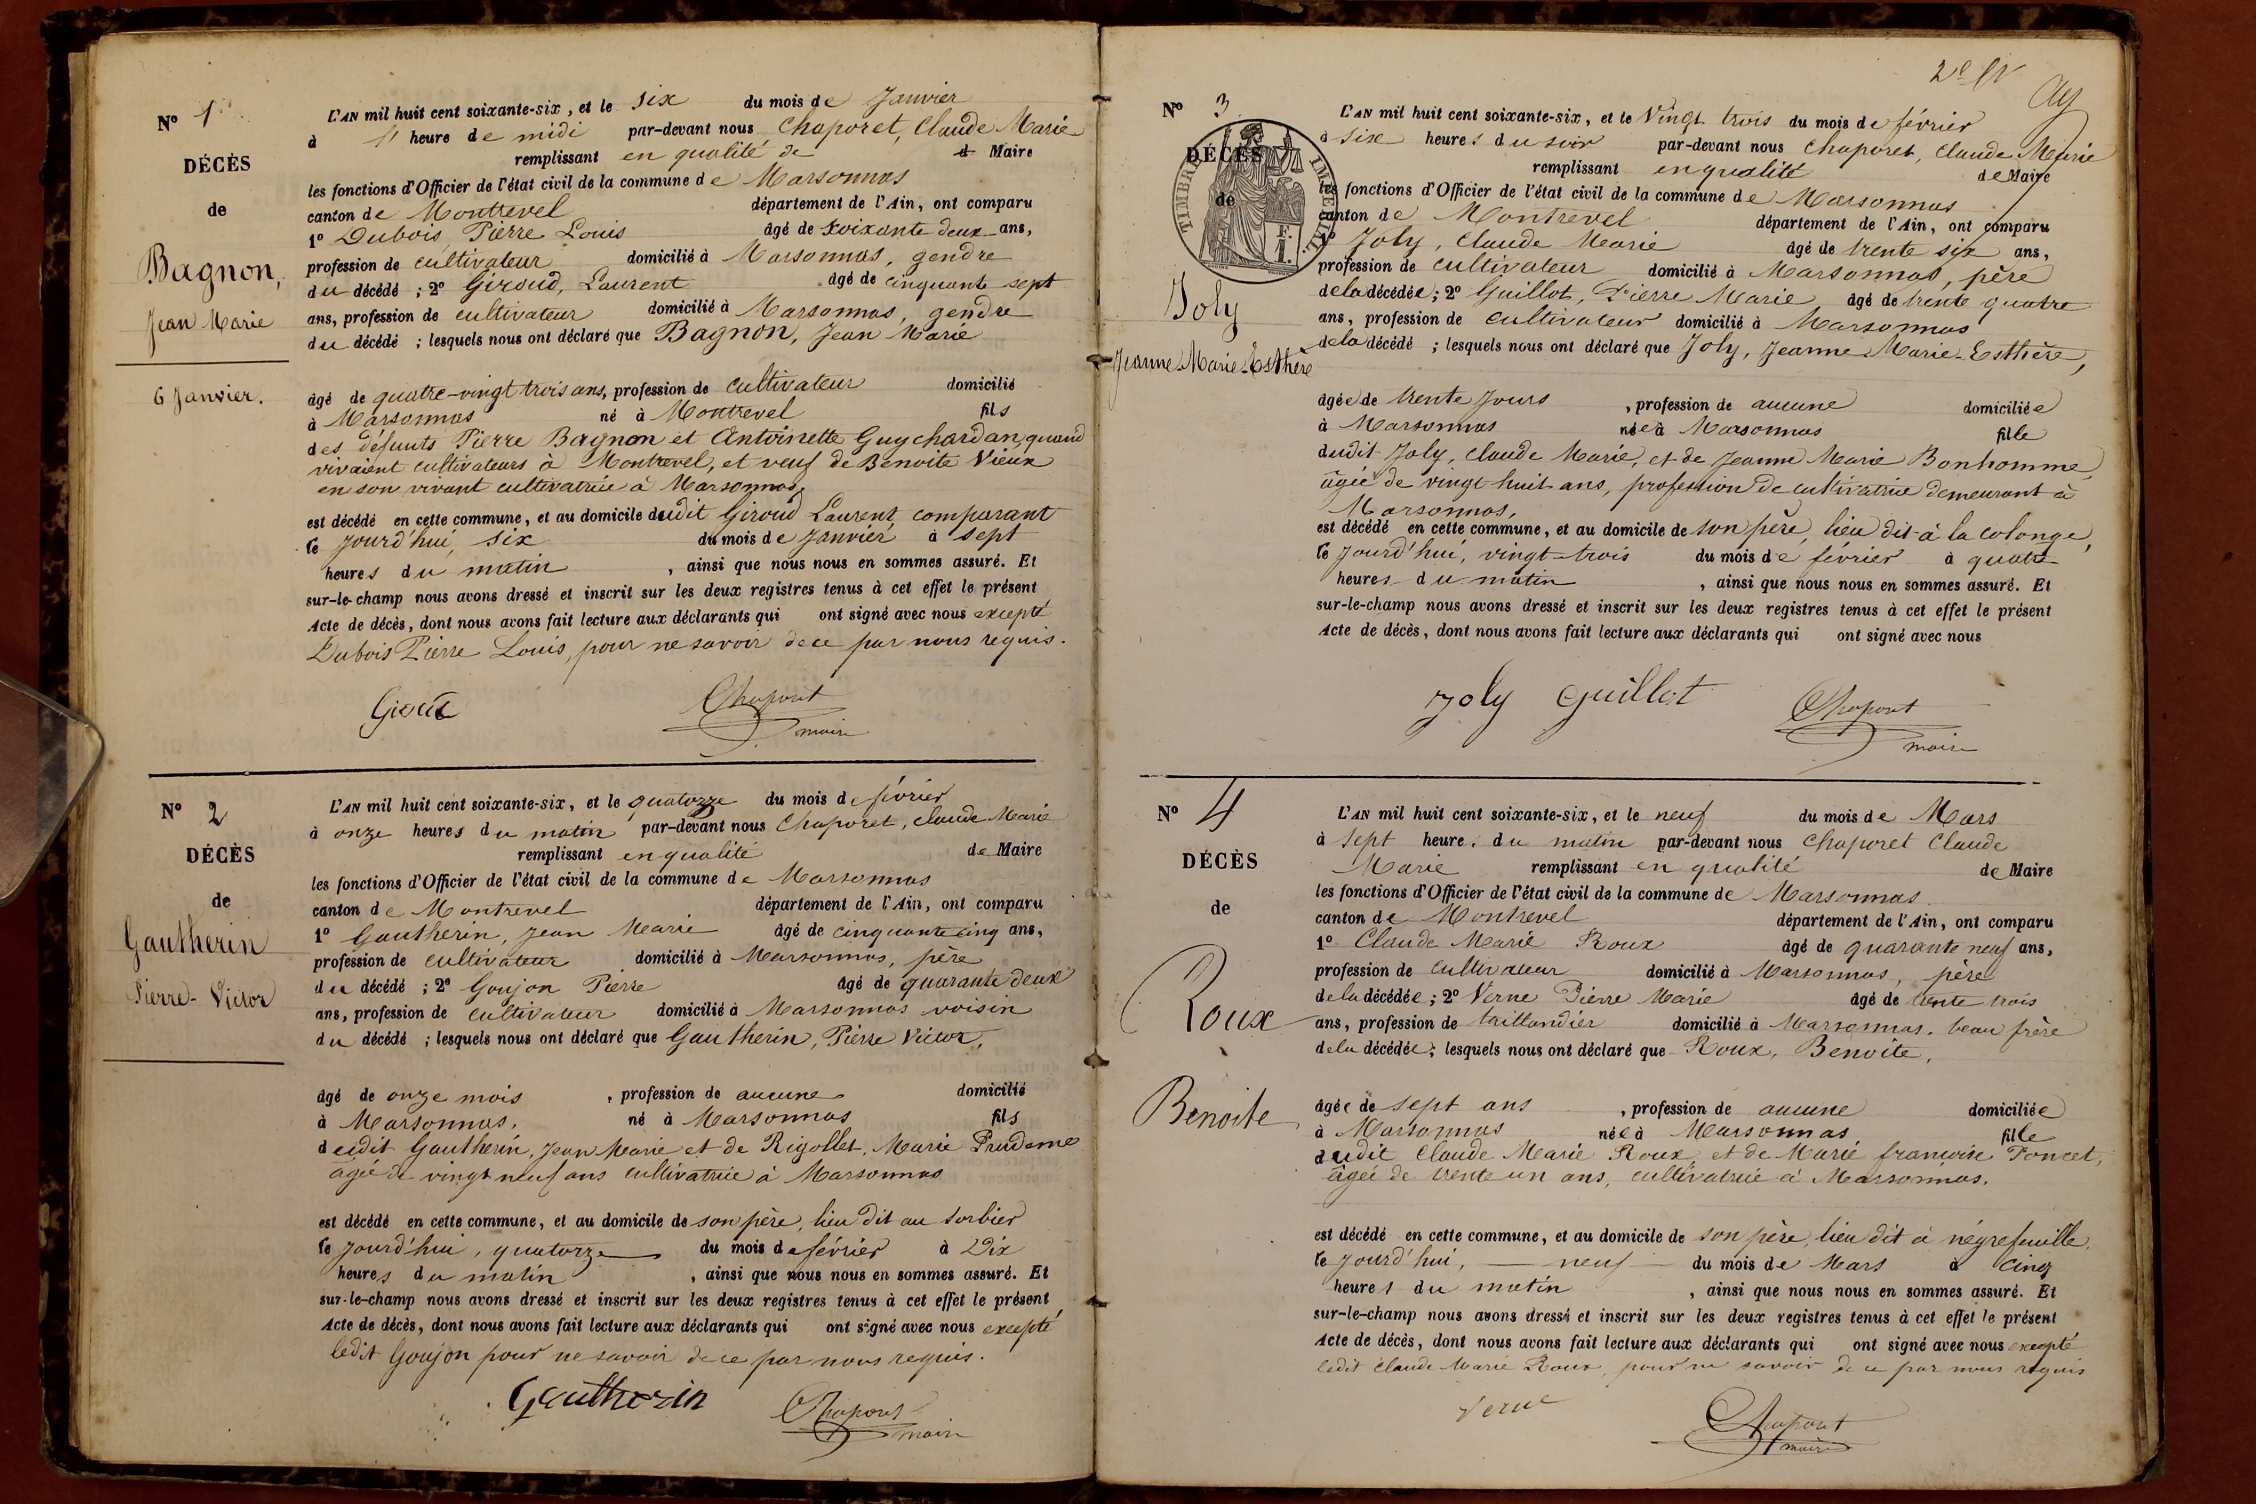 N° 1
DÉCÈS
de
Bagnon,
Jean Marie
6 Janvier.
L'AN mil huit cent soixante-six, et le six du mois de Janvier
à 1 heure de midi par-devant nous Chaporet, Claude Marie
remplissant en qualité de d Maire
les fonctions d'Officier de l'état civil de la commune de Marsonnas
canton de Montrevel département de l'Ain, ont comparu
1° Dubois, Pierre Louis âgé de soixante deux ans,
profession de cultivateur domicilié à Marsonnas, gendre
du décédé ; 2° Giroud, Laurent âgé de cinquante sept
ans, profession de cultivateur domicilié à Marsonnas, gendre
du décédé ; lesquels nous ont déclaré que Bagnon, Jean Marie
âgé de quatre-vingt trois ans, profession de cultivateur domicilié
à Marsonnas né à Montrevel fils
des défunts Pierre Bagnon et Antoinette Guychardan, quand
vivaient cultivateurs à Montrevel, et veuf de Benoite Vieux
en son vivant cultivatrice à Marsonnas,
est décédé en cette commune, et au domicile dudit Giroud Laurent, comparant
le jourd'hui, six du mois de Janvier à sept
heures du matin , ainsi que nous nous en sommes assuré. Et
sur-le-champ nous avons dressé et inscrit sur les deux registres tenus à cet effet le présent
Acte de décès, dont nous avons fait lecture aux déclarants qui ont signé avec nous excepté
Dubois Pierre Louis, pour ne savoir de ce par nous requis.
Chaporet
maire
N° 2
DÉCÈS
de
Gautherin
Pierre-Victor
L'AN mil huit cent soixante-six, et le quatorze du mois de février
à onze heures du matin par-devant nous Chaporet, Claude Marie
remplissant en qualité de Maire
les fonctions d'Officier de l'état civil de la commune de Marsonnas
canton de Montrevel département de l'Ain, ont comparu
1° Gautherin, Jean Marie âgé de cinquante cinq ans,
profession de cultivateur domicilié à Marsonnas, père
du décédé ; 2° Goujon Pierre âgé de quarante deux
ans, profession de cultivateur domicilié à Marsonnas voisin
du décédé ; lesquels nous ont déclaré que Gautherin, Pierre Victor,
âgé de onze mois , profession de aucune domicilié
à Marsonnas, né à Marsonnas fils
dudit Gautherin, Jean Marie et de Rigollet, Marie Prudeme
agée de vingt neuf ans cultivatrice à Marsonnas
est décédé en cette commune, et au domicile de son père, lieu dit au Sorbier
le jourd'hui, quatorze du mois de février à Dix
heures du matin , ainsi que nous nous en sommes assuré. Et
sur-le-champ nous avons dressé et inscrit sur les deux registres tenus à cet effet le présent
Acte de décès, dont nous avons fait lecture aux déclarants qui ont signé avec nous excepté
ledit Goujon pour ne savoir de ce par nous requis.
Gautherin Chaporet
maire
N° 3
DÉCÈS
de
TIMBRE IMPÉRIAL
Joly
Jeanne-Marie-Esthère
L'AN mil huit cent soixante-six, et le Vingt trois du mois de février
à six heures du soir par-devant nous Chaporet, Claude Marie
remplissant en qualité de Maire
les fonctions d'Officier de l'état civil de la commune de Marsonnas
canton de Montrevel département de l'Ain, ont comparu
1° Joly, Claude Marie âgé de trente six ans,
profession de cultivateur domicilié à Marsonnas, père
de la décédée ; 2° Guillot, Pierre Marie, âgé de trente quatre
ans, profession de cultivateur domicilié à Marsonnas
de la décédé ; lesquels nous ont déclaré que Joly, Jeanne-Marie-Esthère,
âgée de trente jours , profession de aucune domiciliée
à Marsonnas née à Marsonnas fille
dudit Joly, Claude Marie, et de Jeanne Marie Bonhomme,
âgée de vingt huit ans, profession de cultivatrice demeurant à
Marsonnas,
est décédé en cette commune, et au domicile de son père, lieu dit à la Colonge,
le jourd'hui, vingt-trois du mois de février à quatre
heures du matin , ainsi que nous nous en sommes assuré. Et
sur-le-champ nous avons dressé et inscrit sur les deux registres tenus à cet effet le présent
Acte de décès, dont nous avons fait lecture aux déclarants qui ont signé avec nous
Joly Guillot Chaporet
maire
N° 4
DÉCÈS
de
Roux
Benoite
L'AN mil huit cent soixante-six, et le neuf du mois de Mars
à sept heure. du matin par-devant nous Chaporet Claude
Marie remplissant en qualité de Maire
les fonctions d'Officier de l'état civil de la commune de Marsonnas
canton de Montrevel département de l'Ain, ont comparu
1° Claude Marie Roux âgé de quarante neuf ans,
profession de cultivateur domicilié à Marsonnas, père
de la décédée ; 2° Verne Pierre Marie âgé de trente trois
ans, profession de taillandier domicilié à Marsonnas, beau frère
de la décédée ; lesquels nous ont déclaré que Roux, Benoite,
âgée de sept ans , profession de aucune domiciliée
à Marsonnas née à Marsonnas fille
dudit Claude Marie Roux, et de Marie françoise Poncet,
âgée de trente un ans, cultivatrice à Marsonnas.
est décédé en cette commune, et au domicile de son père, lieu dit à négrefeuille,
le jourd'hui, neuf du mois de Mars à cinq
heures du matin , ainsi que nous nous en sommes assuré. Et
sur-le-champ nous avons dressé et inscrit sur les deux registres tenus à cet effet le présent
Acte de décès, dont nous avons fait lecture aux déclarants qui ont signé avec nous excepté
ledit Claude Marie Roux, pour ne savoir de ce par nous requis
Verne Chaporet
maire